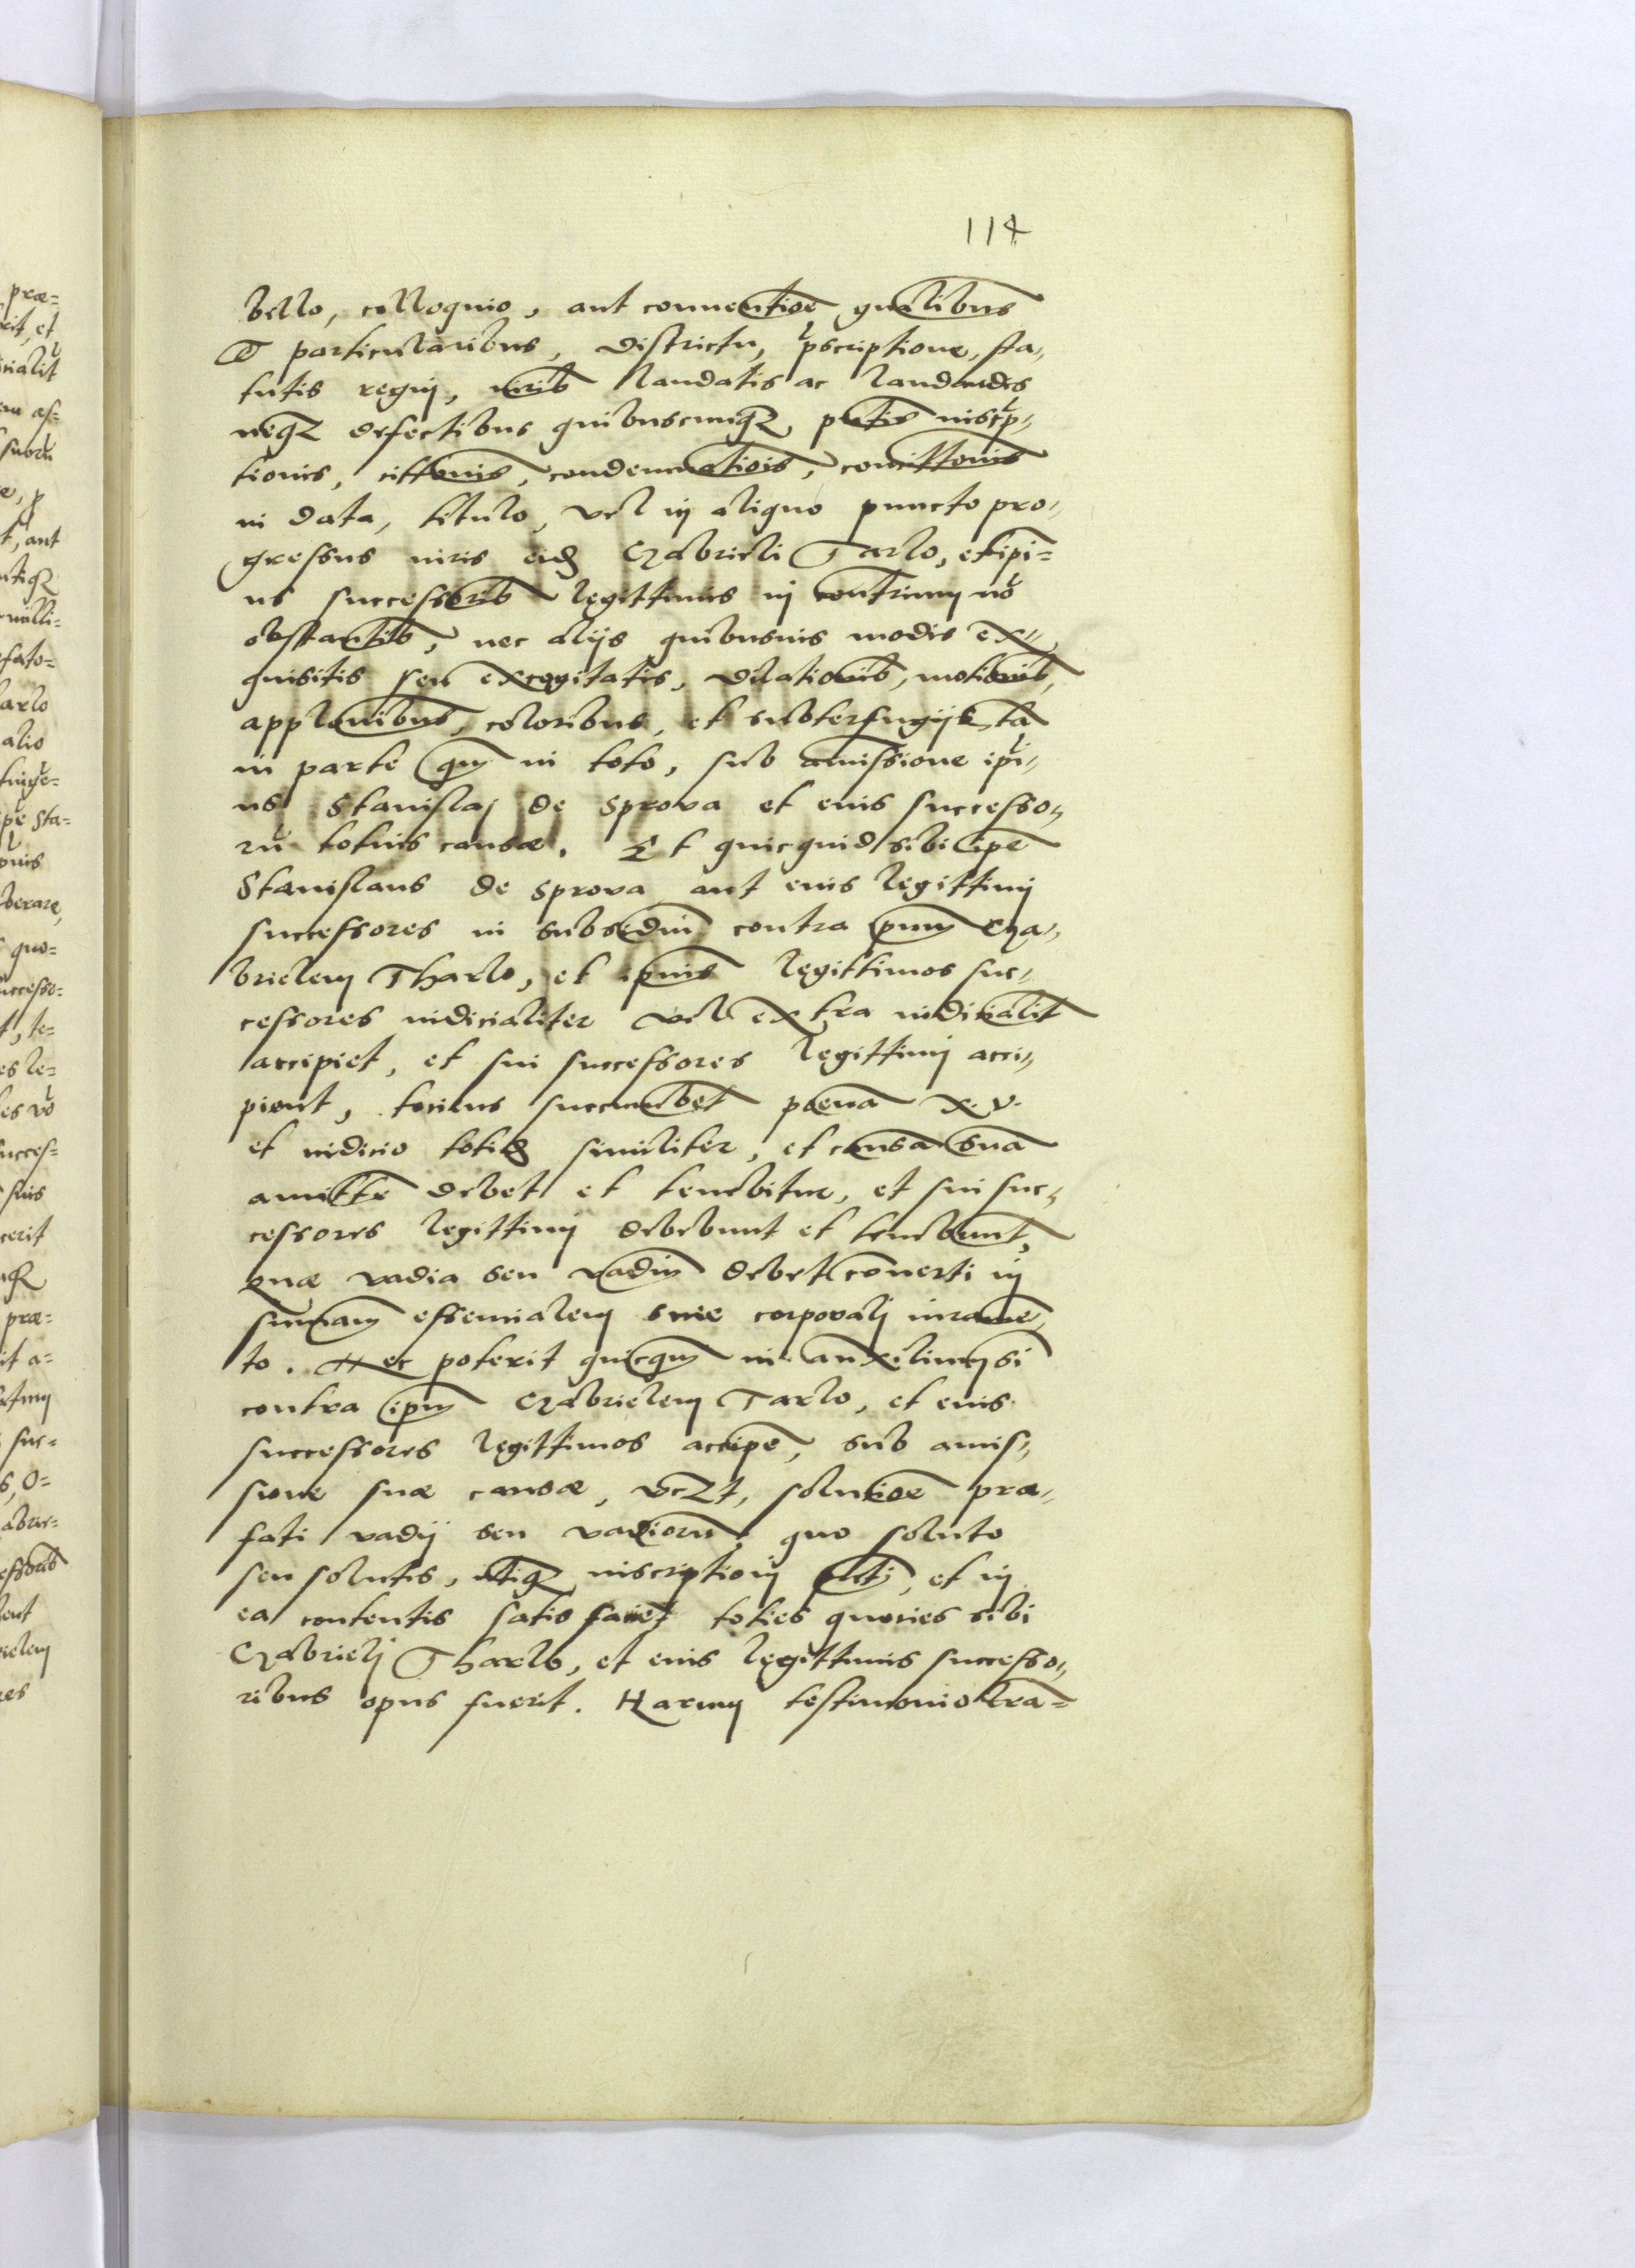 114
bello, colloquio, aut conuentioe gnalibus
et particularibus, districtu, pscriptione, sta„
tutis regnj, iurib laudatis ac laudandis
neqz defectibus quibuscunqz, pntis inscrip„
tionis, citionis, condemnatiois,
in data, titulo, vel in aliquo puncto pro„
gressus iuris eid Gabrieli Tarlo, et ipi=
us successorib legittimis in contrium no
obstantib, nec alijs quibusuis modis ex„
quisitis seu excogitatis, dilationib, motionib,
applonibus, coloribus, et subterfugijs, ta
in parte qm in toto, sub amissione ipi„
us Stanislaj de Sprova et eius successo„
ru totius causæ. Et quicquid sibi ipe
Stanislaus de Sprova aut eius legittimj
successores in subsidiu contra ipum Ga„
brielem Tharlo, et ipius legittimos suc„
cessores iudicialiter vel extra iudicialit
accipiet, et sui successores legittimj acci„
pient, tocius succumbet poena x. v.
et iudicio totid similiter, et causa sua
amitte debet et tenebitur, et sui suc„
cessores legittimj debebunt et tenebunt,
quæ vadia seu vadium debet conuerti in
summam essencialem sine corporalj iurame„
to. Nec poterit quicqm in auxilium si
contra ipm Gabrielem Tarlo, et eius
successores legittimos accipe, sub amis„
sione suæ causæ, vczt, solutioe præ„
fati vadij seu vadioru, quo soluto
seu solutis, utiqz inscriptioni pntj, et in
ea contentis satis faciet toties quocies sibi
Gabrielj Tharlo, et eius legittimis successo„
ribus opus fuerit. Harum testimonio lra=